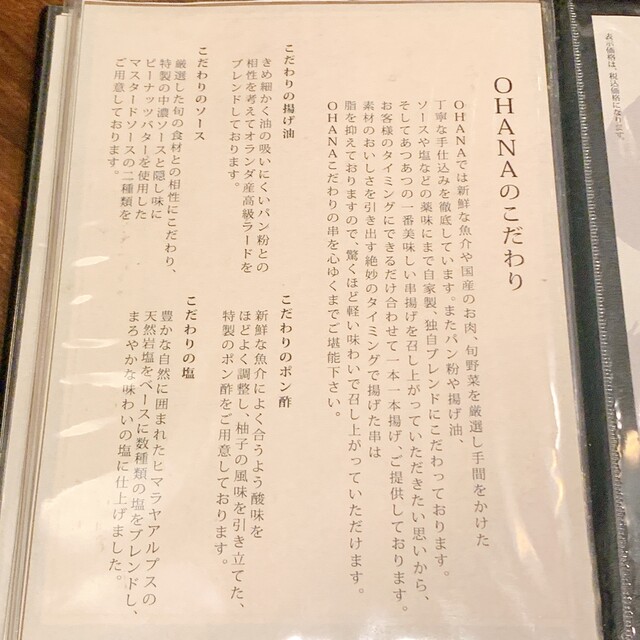 表示価格は、税込価格になります。
OHANAのこだわり
OHANAでは新鮮な魚介や国産のお肉、旬野菜を厳選し手間をかけた
丁寧な手仕込みを徹底しています。またパン粉や揚げ油、
ソースや塩などの薬味にまで自家製、独自ブレンドにこだわっております。
そしてあつあつの一番美味しい串揚げを召し上がっていただきたい思いから、
お客様のタイミングにできるだけ合わせて一本一本揚げ、ご提供しております。
素材のおいしさを引き出す絶妙のタイミングで揚げた串は
脂を抑えておりますので、驚くほど軽い味わいで召し上がっていただけます。
OHANAこだわりの串を心ゆくまでご堪能下さい。
こだわりの揚げ油
きめ細かく油の吸いにくいパン粉との
相性を考えてオランダ産高級ラードを
ブレンドしております。
こだわりのポン酢
新鮮な魚介によく合うよう酸味を
ほどよく調整し、柚子の風味を引き立てた、
特製のポン酢をご用意しております。
こだわりのソース
厳選した旬の食材との相性にこだわり、
特製の中濃ソースと隠し味に
ピーナッツバターを使用した
マスタードソースの二種類を
ご用意しております。
こだわりの塩
豊かな自然に囲まれたヒマラヤアルプスの
天然岩塩をベースに数種類の塩をブレンドし、
まろやかな味わいの塩に仕上げました。